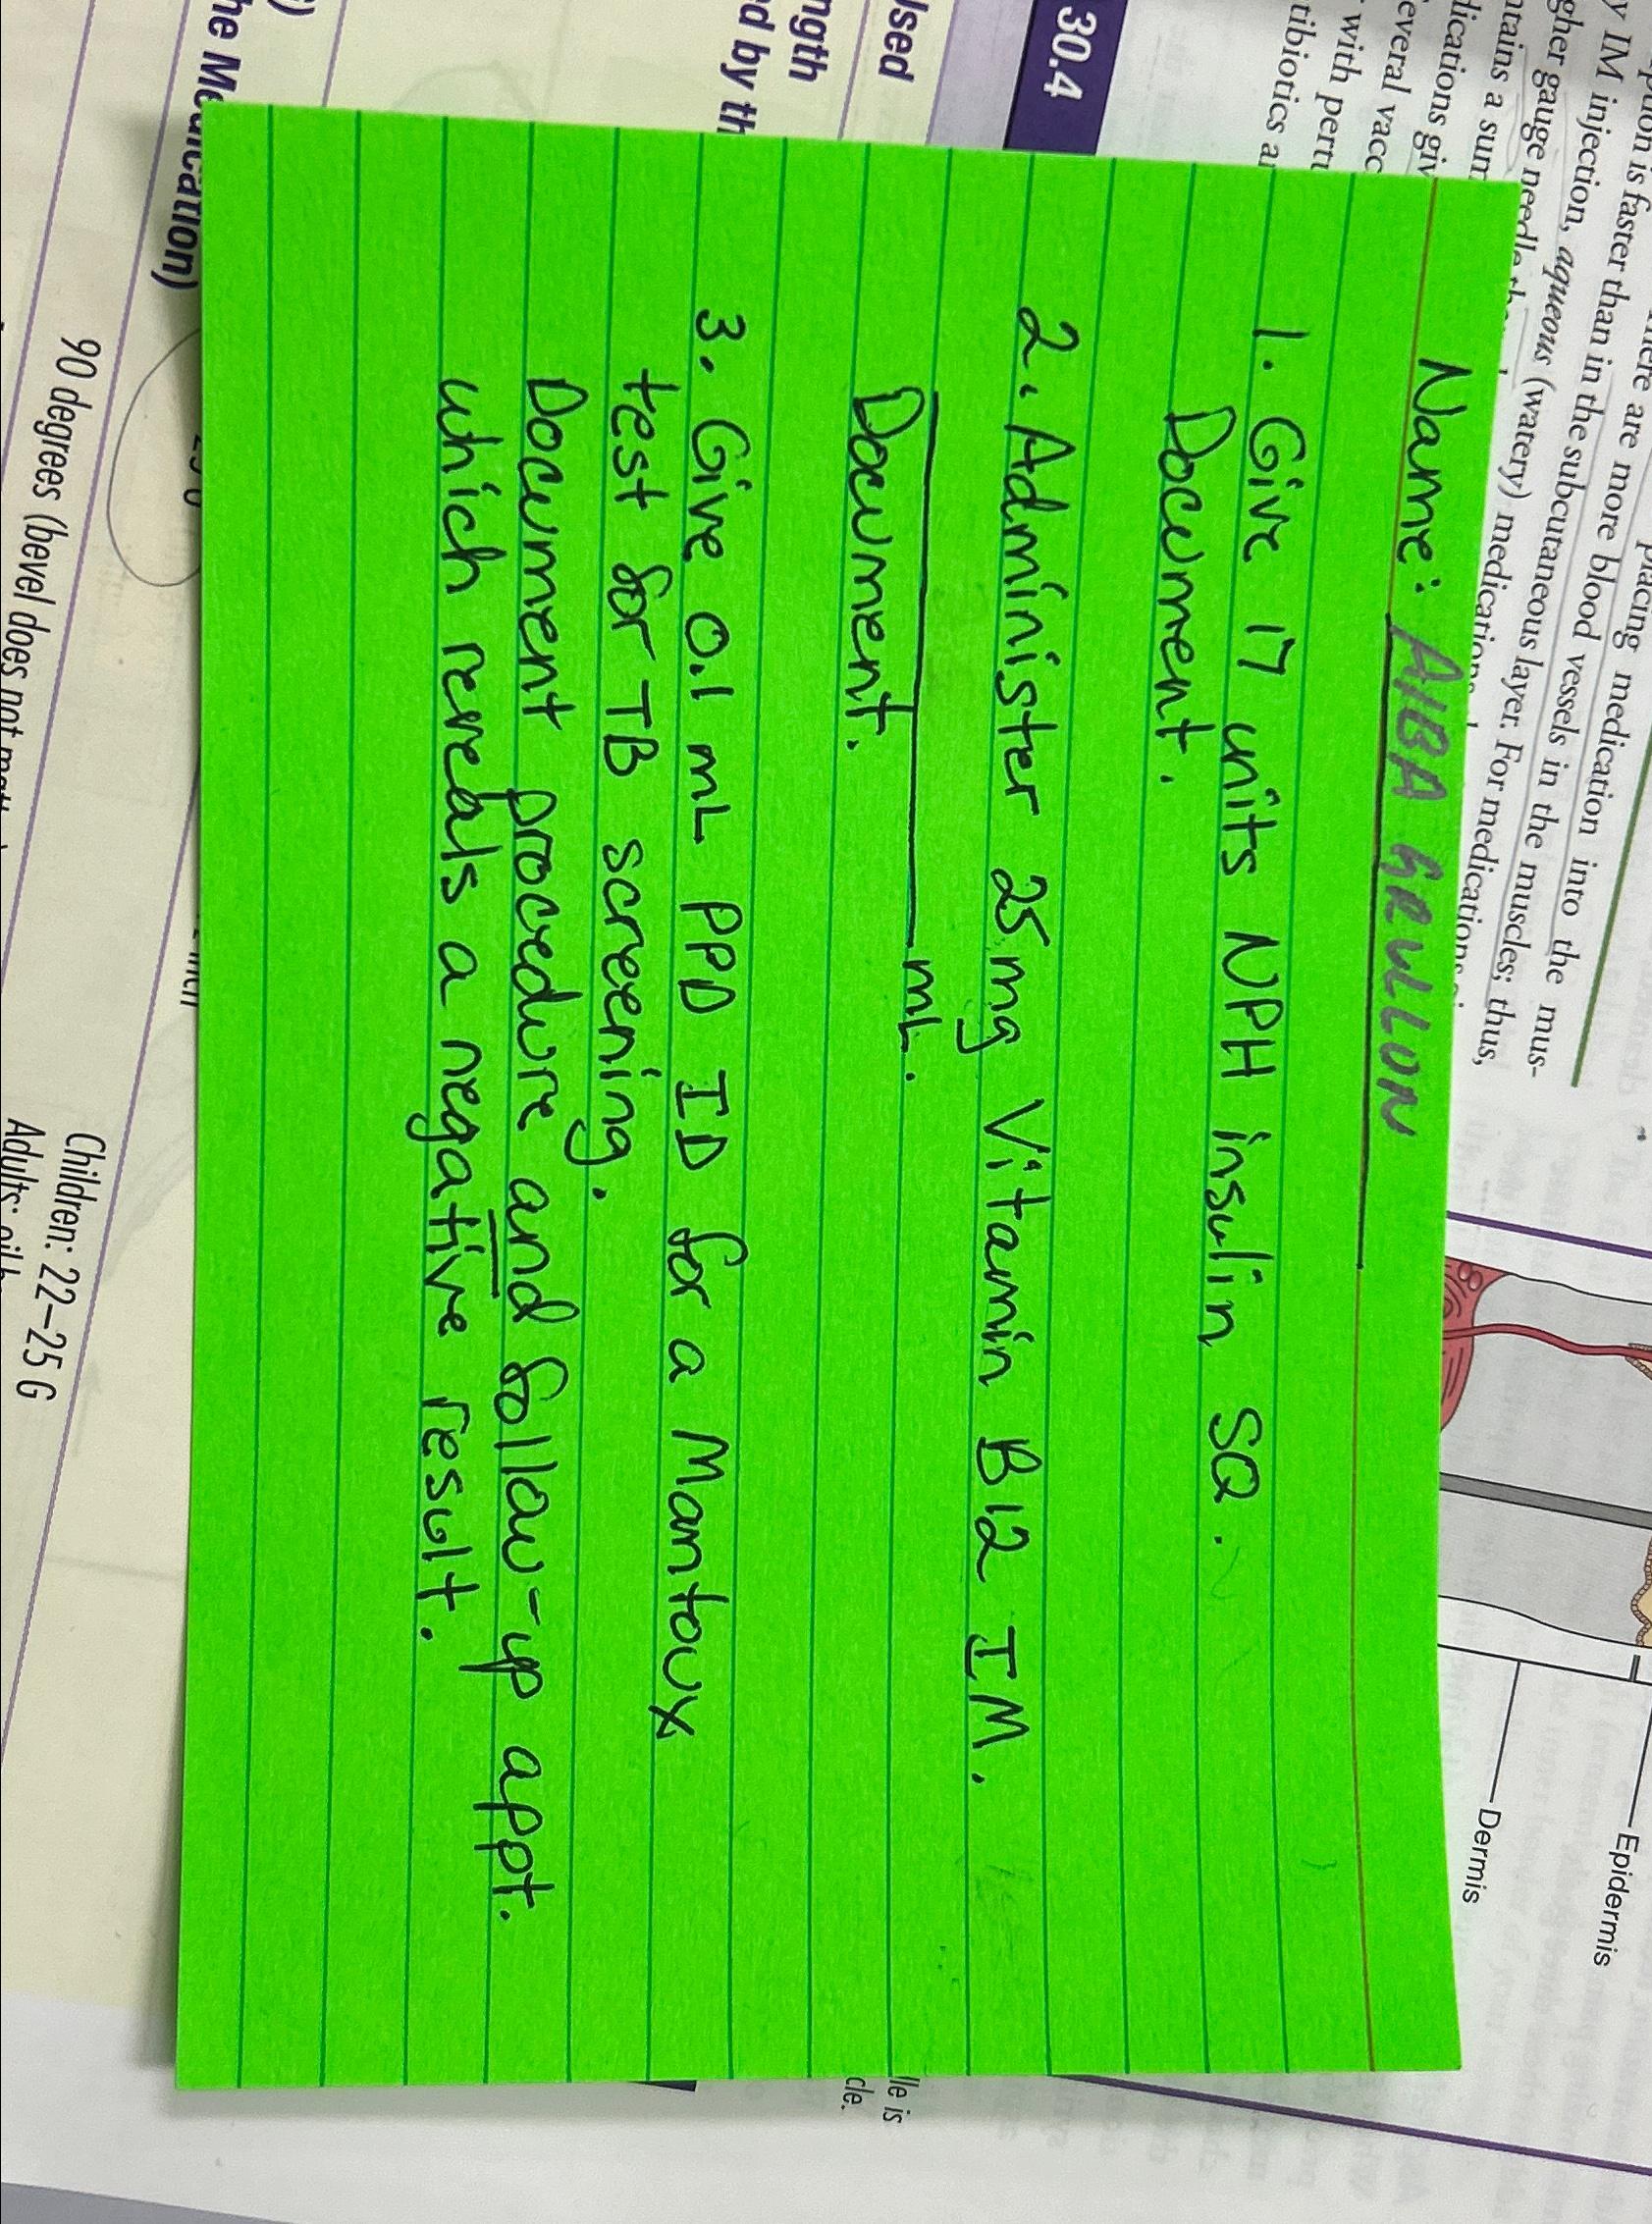 Name: AlBA GRULLON
1. Give 17 units NPH insulin SQ.
Document.
2. Administer 25 mg Vitamin B12 IM.
mL.
Document.
3. Give 0.1 mL PPD ID for a Mantoux
test for TB screening.
Document procedure and follow-up appt.
which reveals a negative result.
placing medication into the mus-
is faster than in the subcutaneous layer. For medications
y IM injection, aqueous (watery) medications
there are more blood vessels in the muscles; thus,
gher gauge needle
ntains a sum
dications giv
everal vacc
with pertu
tibiotics a
30.4
Used
ngth
d by th
he Medication)
90 degrees (bevel does not matt
Children: 22–25 G
Adults:
Epidermis
Dermis
lle is
cle.